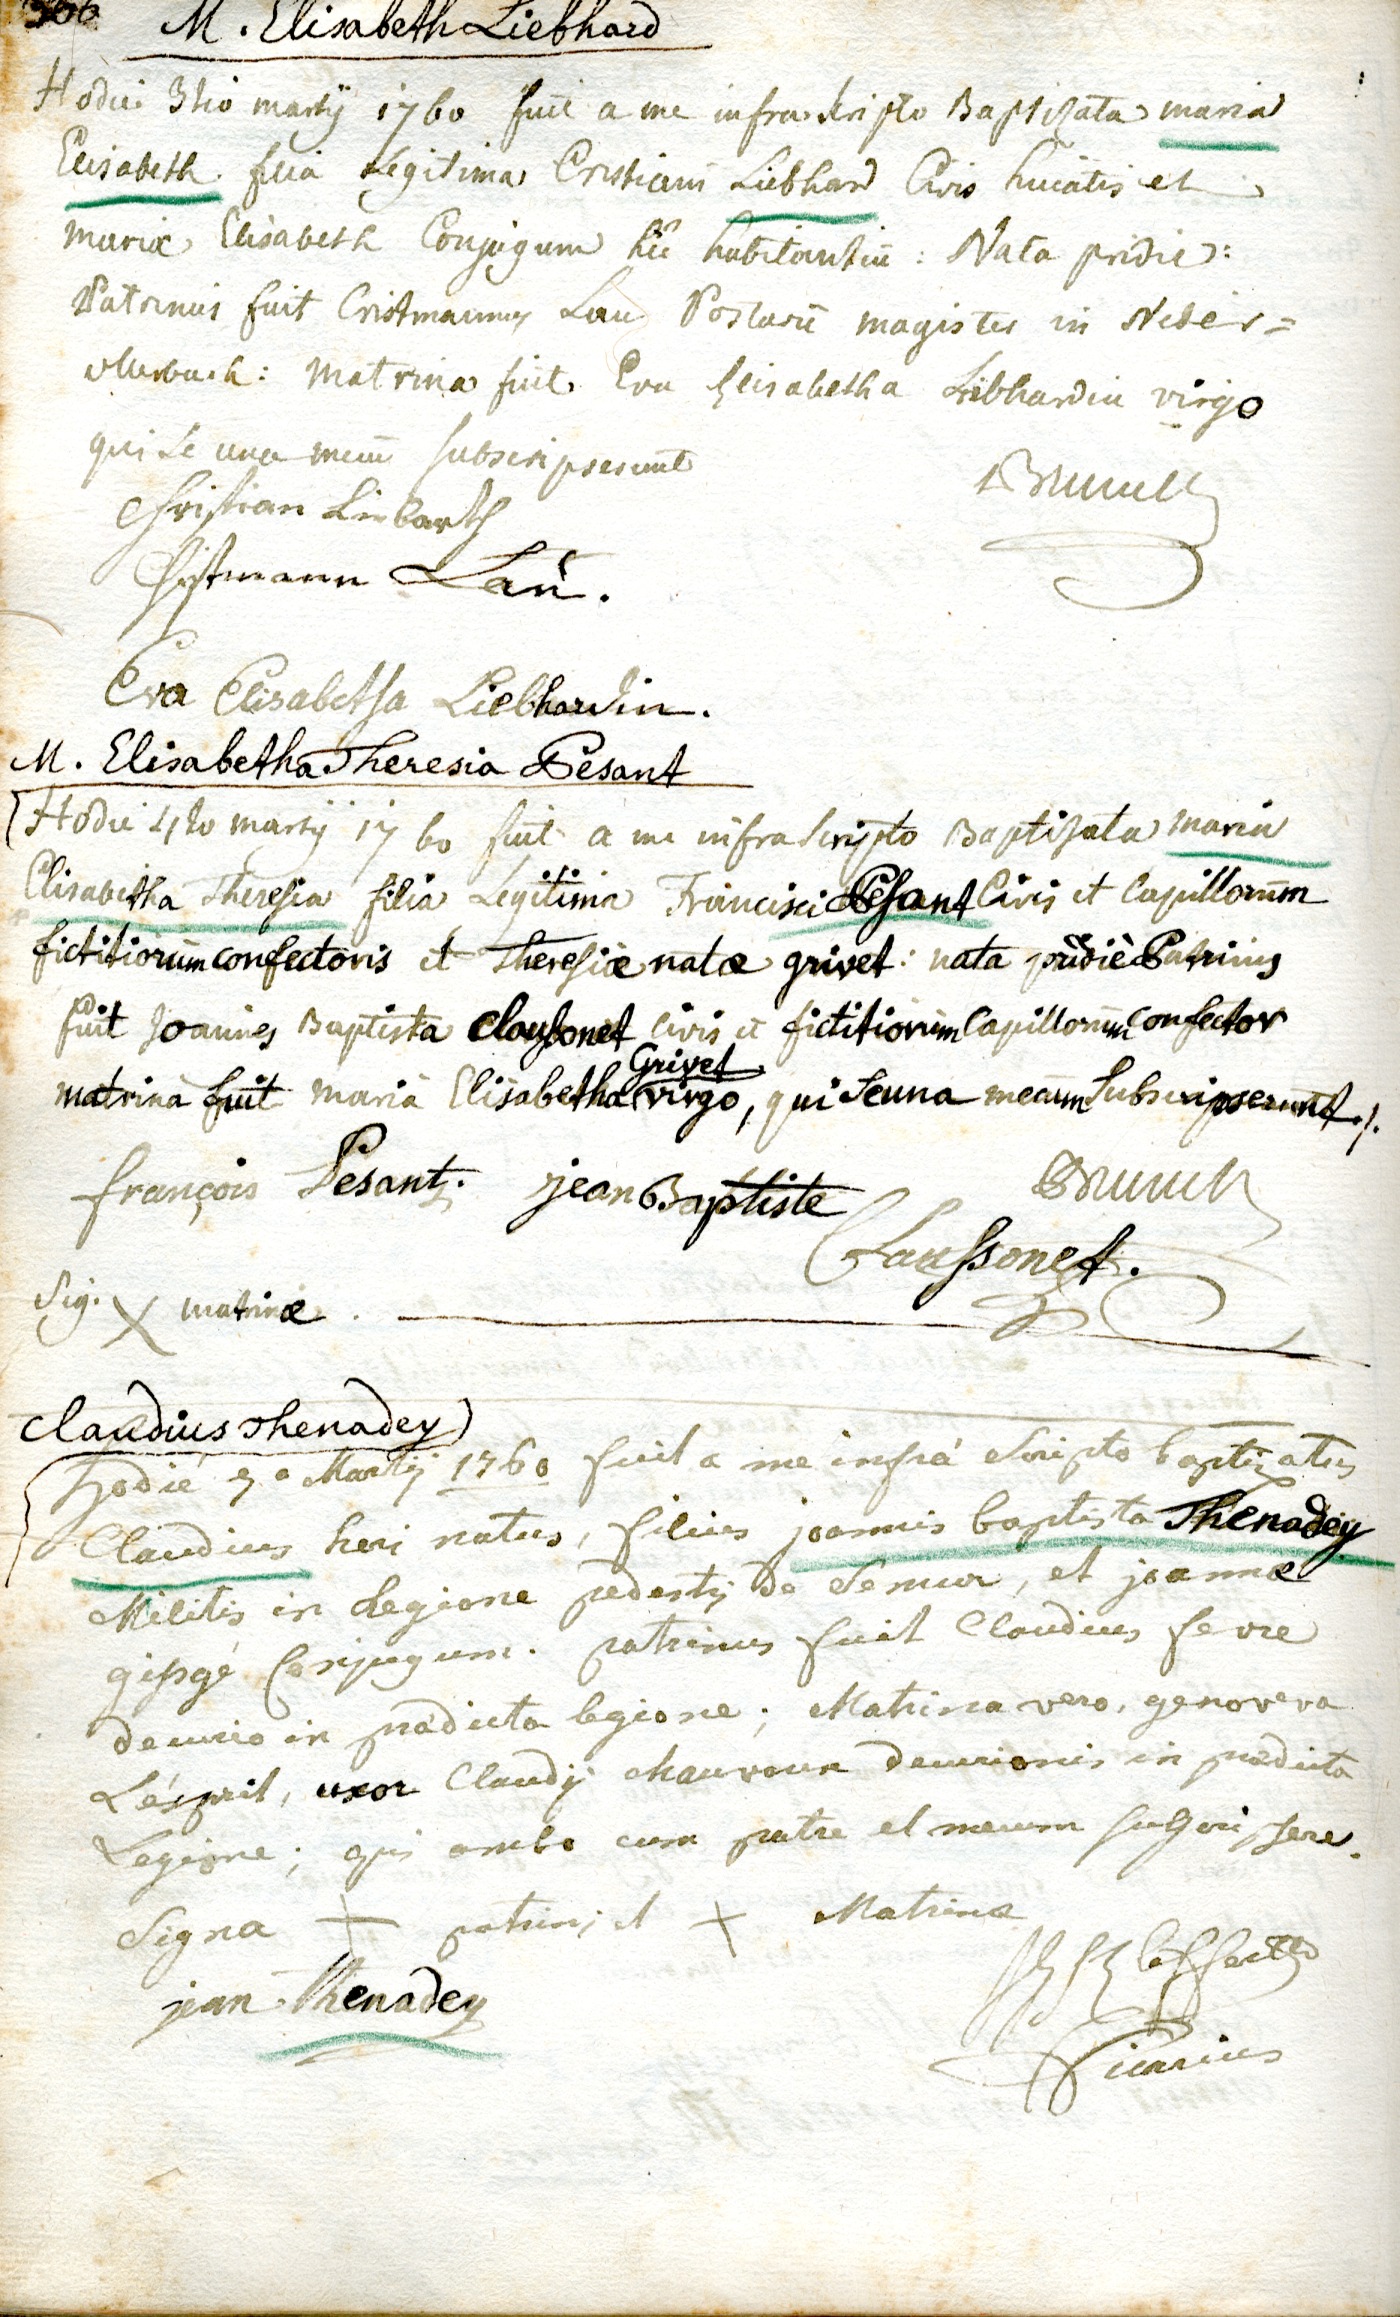 M. Elisabeth Liebhard
Hodie 3tio martij 1760 fuit a me infra scripto Baptizata maria
Elisabeth filia Legitima Cristiani Liebhard Civis huiatis et
mariæ Elisabeth Conjugum hic habitantiū : Nata pridie:
Patrinus fuit Cristmannus Lau Postarū magister in Nider=
: matrina fuit Eva Elisabetha Liebhardin virgo
qui se una mecū subscripserunt
Christian Liebarth
Bruuck
Christmann Lau.
Eva Elisabetha Liebhardin.
M. Elisabetha Theresia Pesant
Hodie 4to martij 1760 fuit a me infra scripto Baptizata maria
Elisabetha Theresia filia Legitima Francisci Pesant Civis et Capillorum
fictitiorum confectoris et Theresiæ natæ grivet: nata pridiè Patrinus
fuit Joannes Baptista Clausonet Civis et fictitiorum Capillorum confector
matrina fuit maria Elisabetha Grivet virgo, qui se una mecum subscripserunt ./.
françois Pesant. jean Baptiste
Bruuck
Claussonet.
Sig. X matrinæ
Claudius Thenadey
hodié 5a Martij 1760 fuit a me infrá scripto baptizatus
Claudius heri natus, filius joannis baptista Thenadey
Militis in Legione pedestrj de Semur, et joannæ
gipgé Conjugum. patrinus fuit Claudius fevre
decurio in prædicta legione; Matrina vero, genoveva
Lésprit, uxor Claudij Mauvoun decurionis in prædicta
Legione; qui ambo cum patre et mecum subscripsere.
Signa + patrinj et + Matrinæ
jean Thenadey
Vicarius